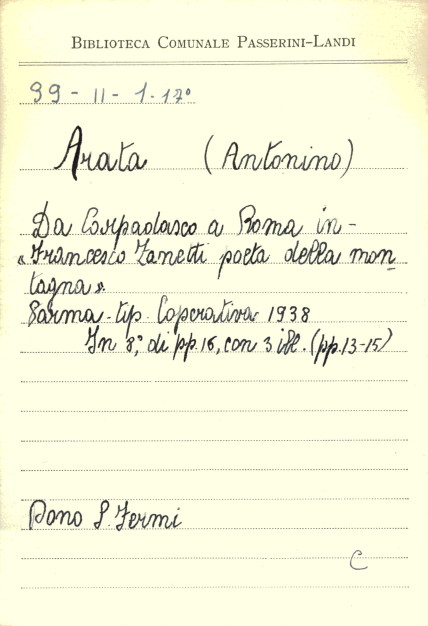 BIBLIOTECA COMUNALE PASSERINI-LANDI
99 - II - 1. 17º
Arata (Antonino)
Da Corpadasco a Roma in -
«Francesco Zanetti poeta della mon-
tagna».
Parma - tip. Coperativa 1938
In 8º, di pp. 16, con 3 ill. (pp. 13-15)
Dono S. Fermi
C